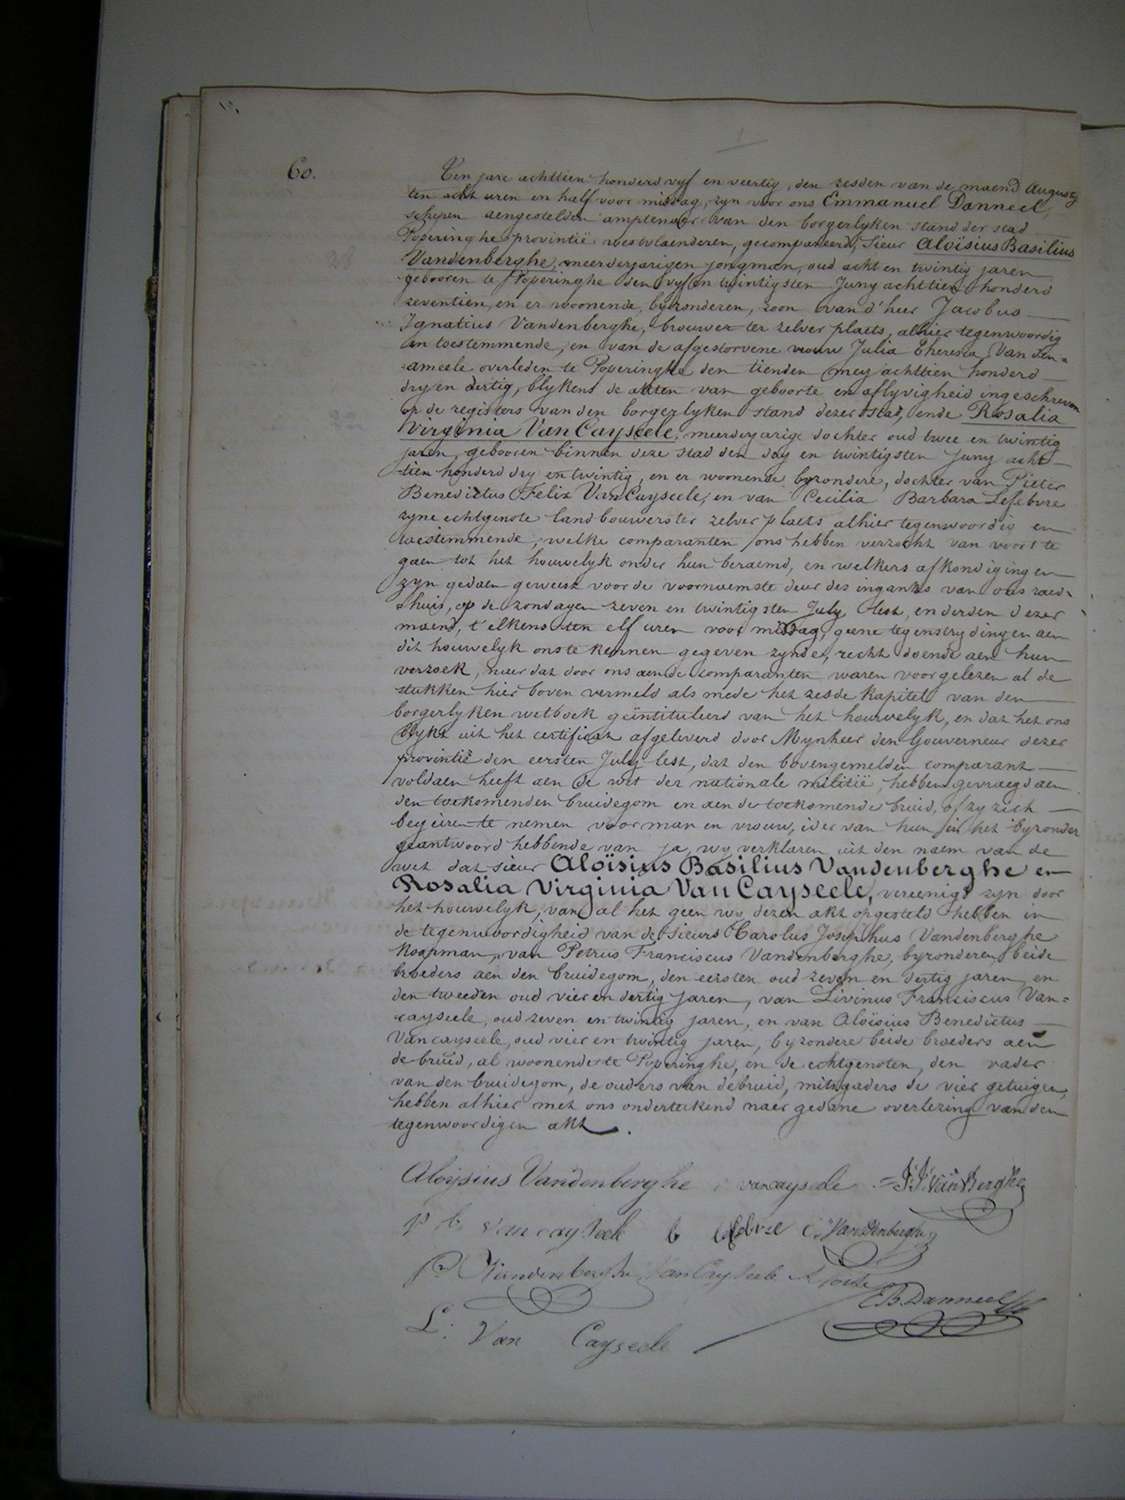 60.
Ten jare achttien honderd vyf en veertig, den zesden van de maend Augusty
ten acht uren en half voor middag, zyn voor ons Emmanuel Danneel,
schepen aengestelden amptenaer van den borgerlyken stand der stad
Poperinghe provintië westvlaenderen, gecompareerd, Sieur Aloïsius Basilius
Vandenberghe, meerderjarigen jongman, oud acht en twintig jaren
gebooren te Poperinghe den vyf en twintigsten Juny achttien honderd
zeventien, en er woonende, byzonderen, zoon van d'heer Jacobus
Ignatius Vandenberghe, brouwer ter zelver plaets, alhier tegenwoordig
en toestemmende, en van de afgestorvene vrouw Julia Theresia Vanden=
ameele overleden te Poperinghe den tienden mey achttien honderd
dry en dertig, blykens de akten van geboorte en aflyvigheid ingeschreven
op de registers van den borgerlyken stand dezer stad, ende Rosalia
Virginia VanCayseele, meerderjarige dochter oud twee en twintig
jaren, gebooren binnen deze stad den dry en twintigsten Juny acht-
tien honderd dry en twintig, en er woonende, byzondere, dochter van Pieter
Benedictus Felix VanCayseele, en van Cecilia Barbara Lefebvre
zyne echtgenote landbouwers ter zelver plaets alhier tegenwoordig en
toestemmende, welke comparanten ons hebben verzocht van voort te
gaen tot het houwelyk onder hun beraemd, en welkers afkondigingen
zyn gedaen geweest voor de voornaemste deur des ingangs van ons raed-
shuis, op de zondagen zeven en twintigsten July lest, en derden dezer
maend, t'elkens ten elf uren voor middag, geene tegenstrydingen aen
dit houwelyk ons te kennen gegeven zynde, recht doende aen hun
verzoek, naer dat door ons aen de comparanten waren voorgelezen al de
stukken hier boven vermeld als mede het zesde kapitel van den
borgerlyken wetboek geïntituleerd van het houwelyk, en dat het ons
blykt uit het certificat afgeleverd door Mynheer den Gouverneur dezer
provintië den eersten July lest, dat den bovengemelden comparant
voldaen heeft aen de wet der nationale militië, hebben gevraegd aen
den toekomenden bruidegom en aen de toekomende bruid, of zy zich
begeiren te nemen voor man en vrouw, ider van hun in het byzonder
geantwoord hebbende van ja, wy verklaren uit den naem van de
wet dat sieur Aloïsius Basilius Vandenberghe en
Rosalia Virginia VanCayseele, vereenigt zyn door
het houwelyk, van al het geen wy dezen akt opgesteld hebben in
de tegenwoordigheid van de sieurs Carolus Josephus Vandenberghe
koopman, van Petrus Franciscus Vandenberghe, byzonderen beide
broeders aen den bruidegom, den eersten oud zeven en dertig jaren, en
den tweeden oud vier en dertig jaren, van Livinus Franciscus Van=
cayseele, oud zeven en twintig jaren, en van Aloïsius Benedictus
Vancayseele, oud vier en twintig jaren, byzondere beide broeders aen
de bruid, al woonende te Poperinghe, en de echtgenoten, den vader
van den bruidegom, de ouders van de bruid, mitsgaders de vier getuigen,
hebben alhier met ons onderteekend naer gedane overlezing van den
tegenwoordigen akt.
Aloysius Vandenberghe vancayseele J.J. VanBerghe
p b vancayseele b lefebvre C. Vandenberghe
P. Vandenberghe VanCayseele
E B. Danneel
L: Van Cayseele